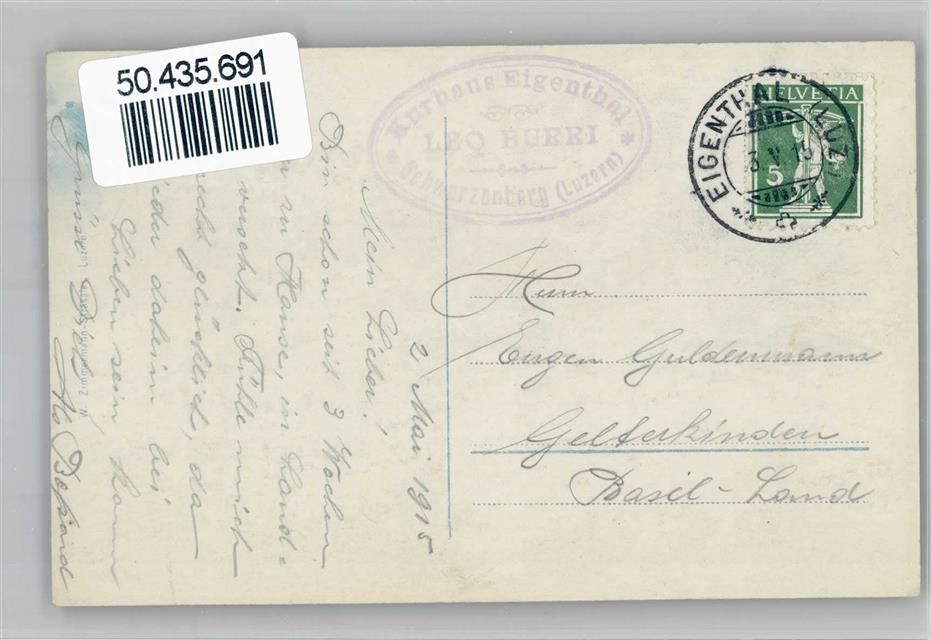 50.435.691
Kurhaus Eigenthal
LEO BURRI
Schwarzenberg (Luzern)
EIGENTHAL (LUZ.)
3. V. 15
HELVETIA
5
2 Mai 1915
Mein Lieber!
Bin schon seit 3 Wochen
zu Hause, in Land-
versetzt. Fühle mich
glücklich, da
wieder daheim bei
Lieben sein kann
Grüsse
Herrn
Eugen Guldenmann
Gelterkinden
Basel-Land